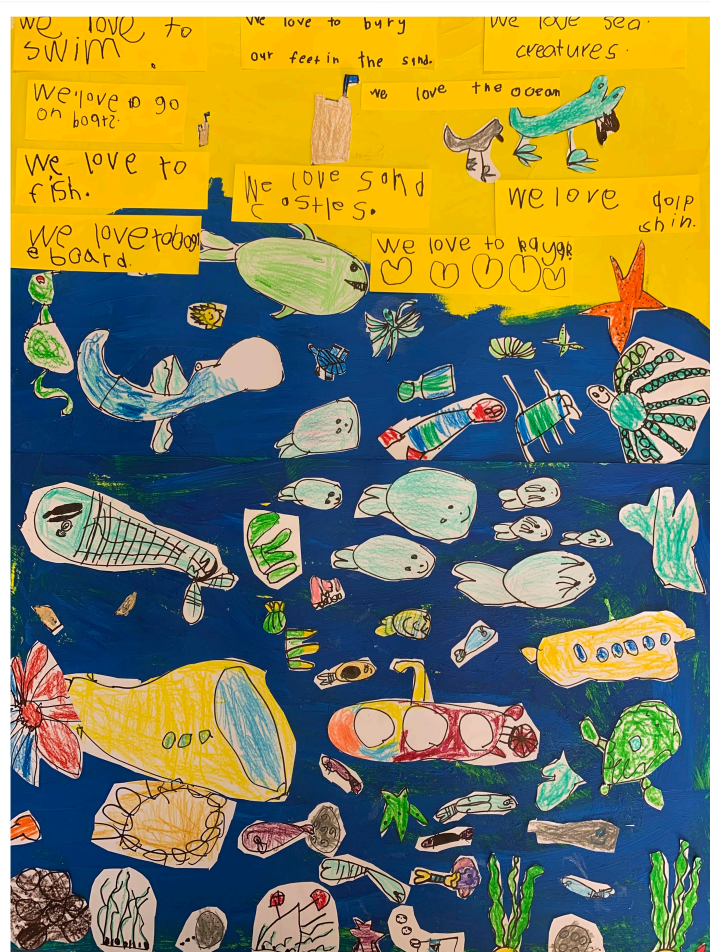 we love to
swim.
We love to bury
our feet in the sand.
We love sea
creatures.
We love to go
on boats.
we love the ocean
We love to
fish.
We love sand
castles.
We love dolp
shin.
We love to boogi
e board.
We love to kayak